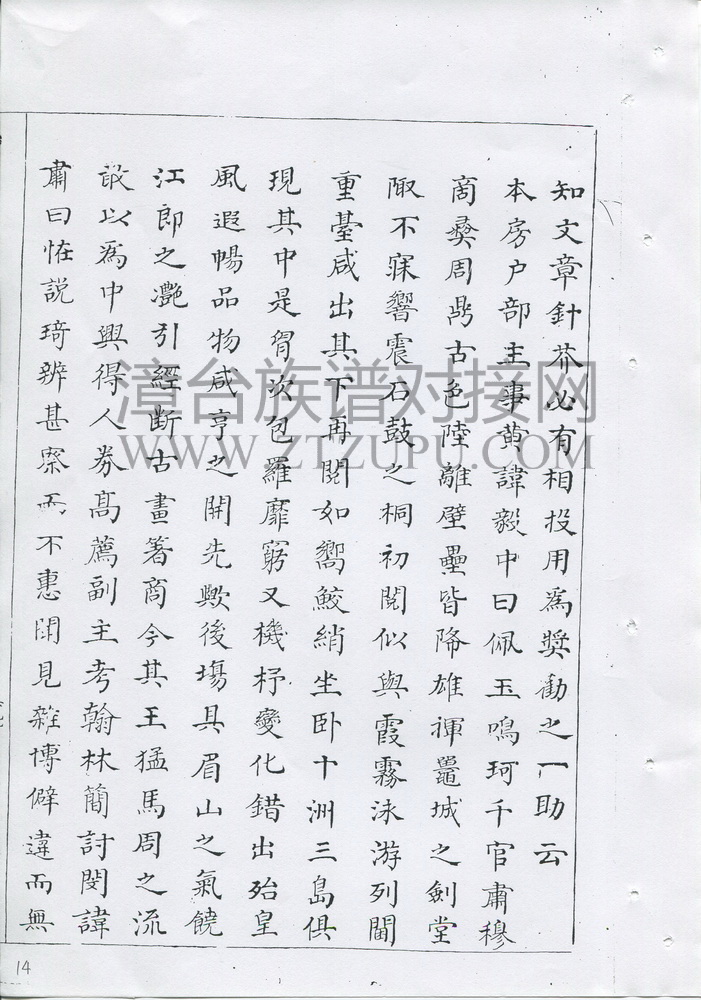 知文章針芥必有相投用為奬勸之一助云
本房户部主事黄諱毅中曰佩玉鳴珂千官肅穆
商彜周鼎古色陸離壁壘皆降雄揮鼉城之劍堂
陬不寐響震石鼓之桐初閱似與霞霧泳游列閫
重臺咸出其下再閱如嚮鮫綃坐卧十洲三島俱
現其中是胷次包羅靡窮又機杼變化錯出殆皇
風遐暢品物咸亨之開先歟後塲具眉山之氣饒
江郎之灔引經斷古畫箸商今其王猛馬周之流
敢以為中興得人券髙薦副主考翰林簡討閔諱
肅曰恠説琦辨甚察而不惠聞見雜博僻違而無
漳台族谱对接网
WWW.ZTZUPU.COM
14